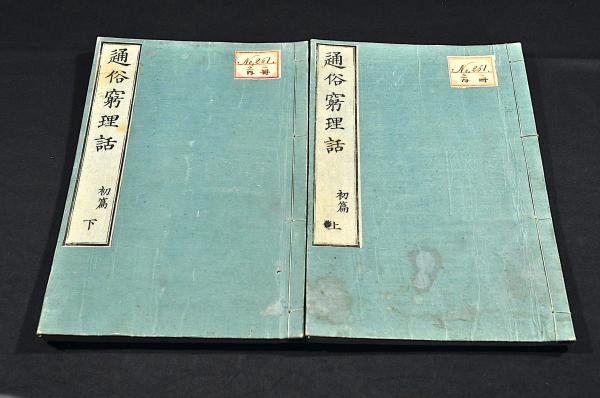 通俗窮理話
初篇
上
No. 251.
通俗窮理話
初篇
下
No. 251.